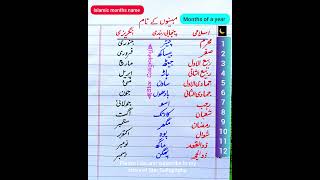 Islamic months name
Months of a year
مہینوں کے نام
اسلامی انگریزی
1 محرم چیتر جنوری
2 صفر بیساکھ فروری
3 ربیع الاول جیٹھ مارچ
4 ربیع الثانی ہاڑ اپریل
5 جمادی الاول ساون مئی
6 جمادی الثانی بھادوں جون
7 رجب اسو جولائی
8 شعبان کاتک اگست
9 رمضان مگھر ستمبر
10 شوال پوہ اکتوبر
11 ذوالقعد ماگھ نومبر
12 ذوالحجہ پھگن دسمبر
Please like and subscribe to my
Star Calligraphy